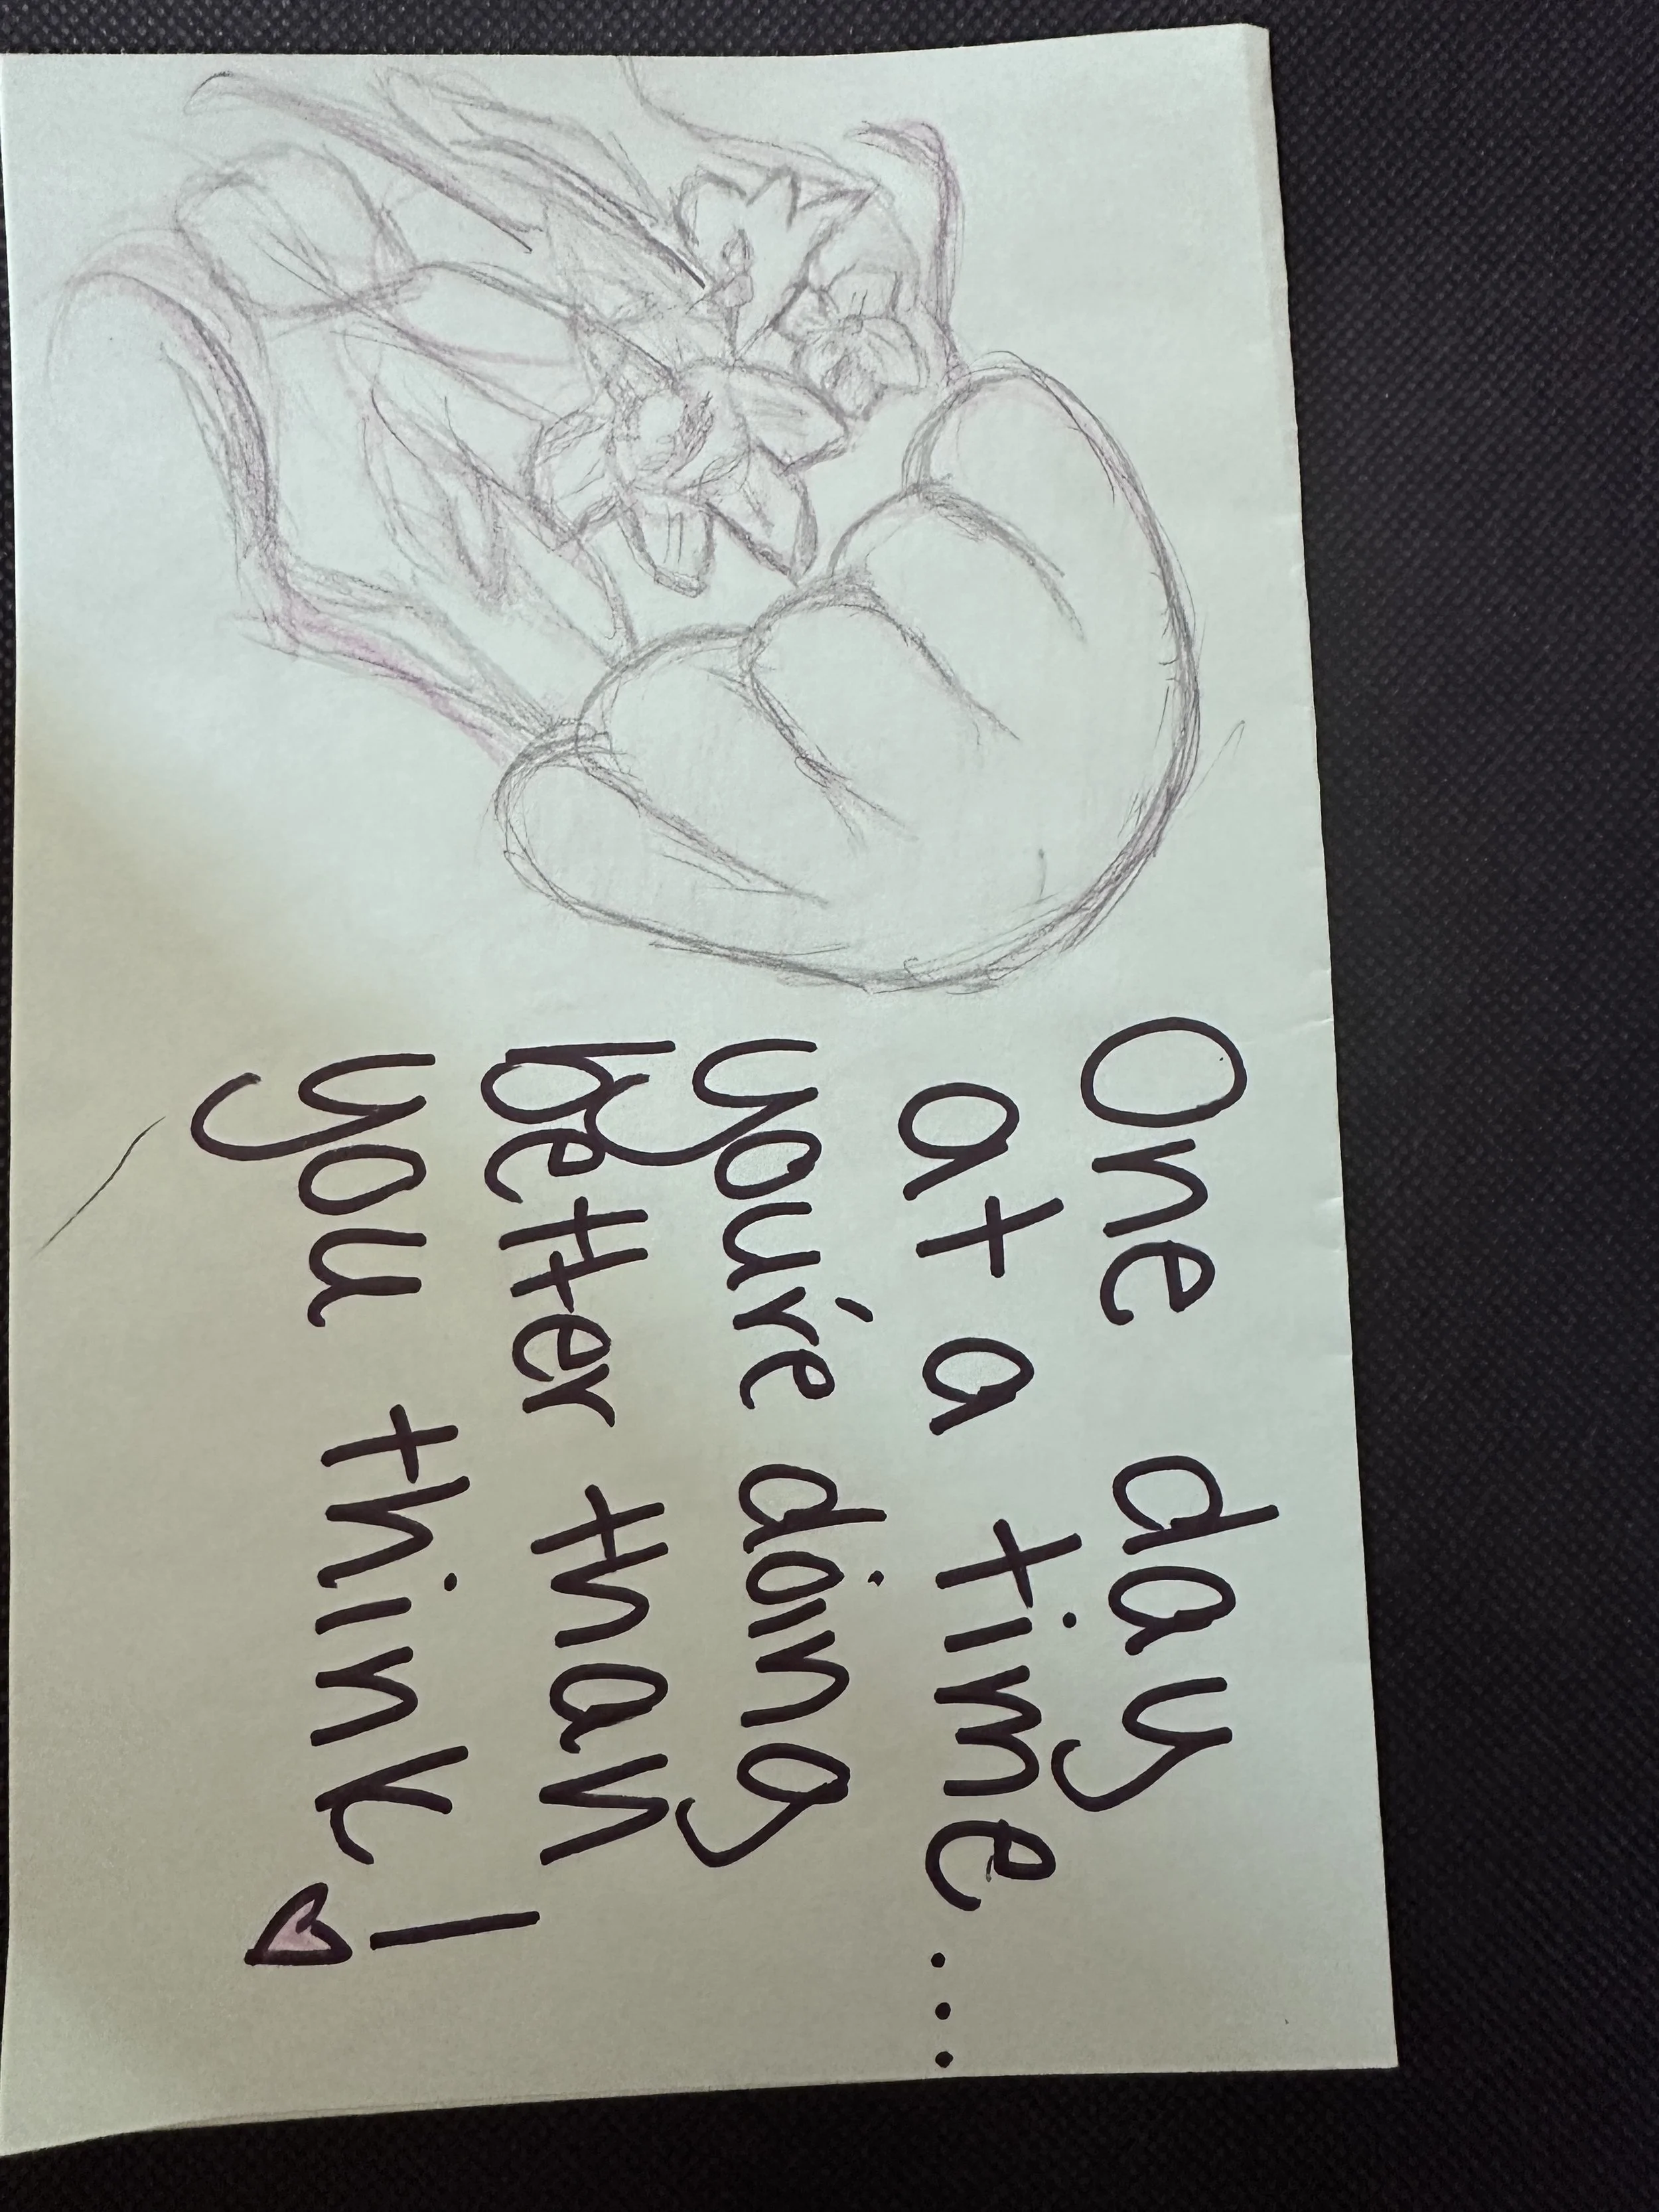 One day
at a time...
you're doing
better than
you think!